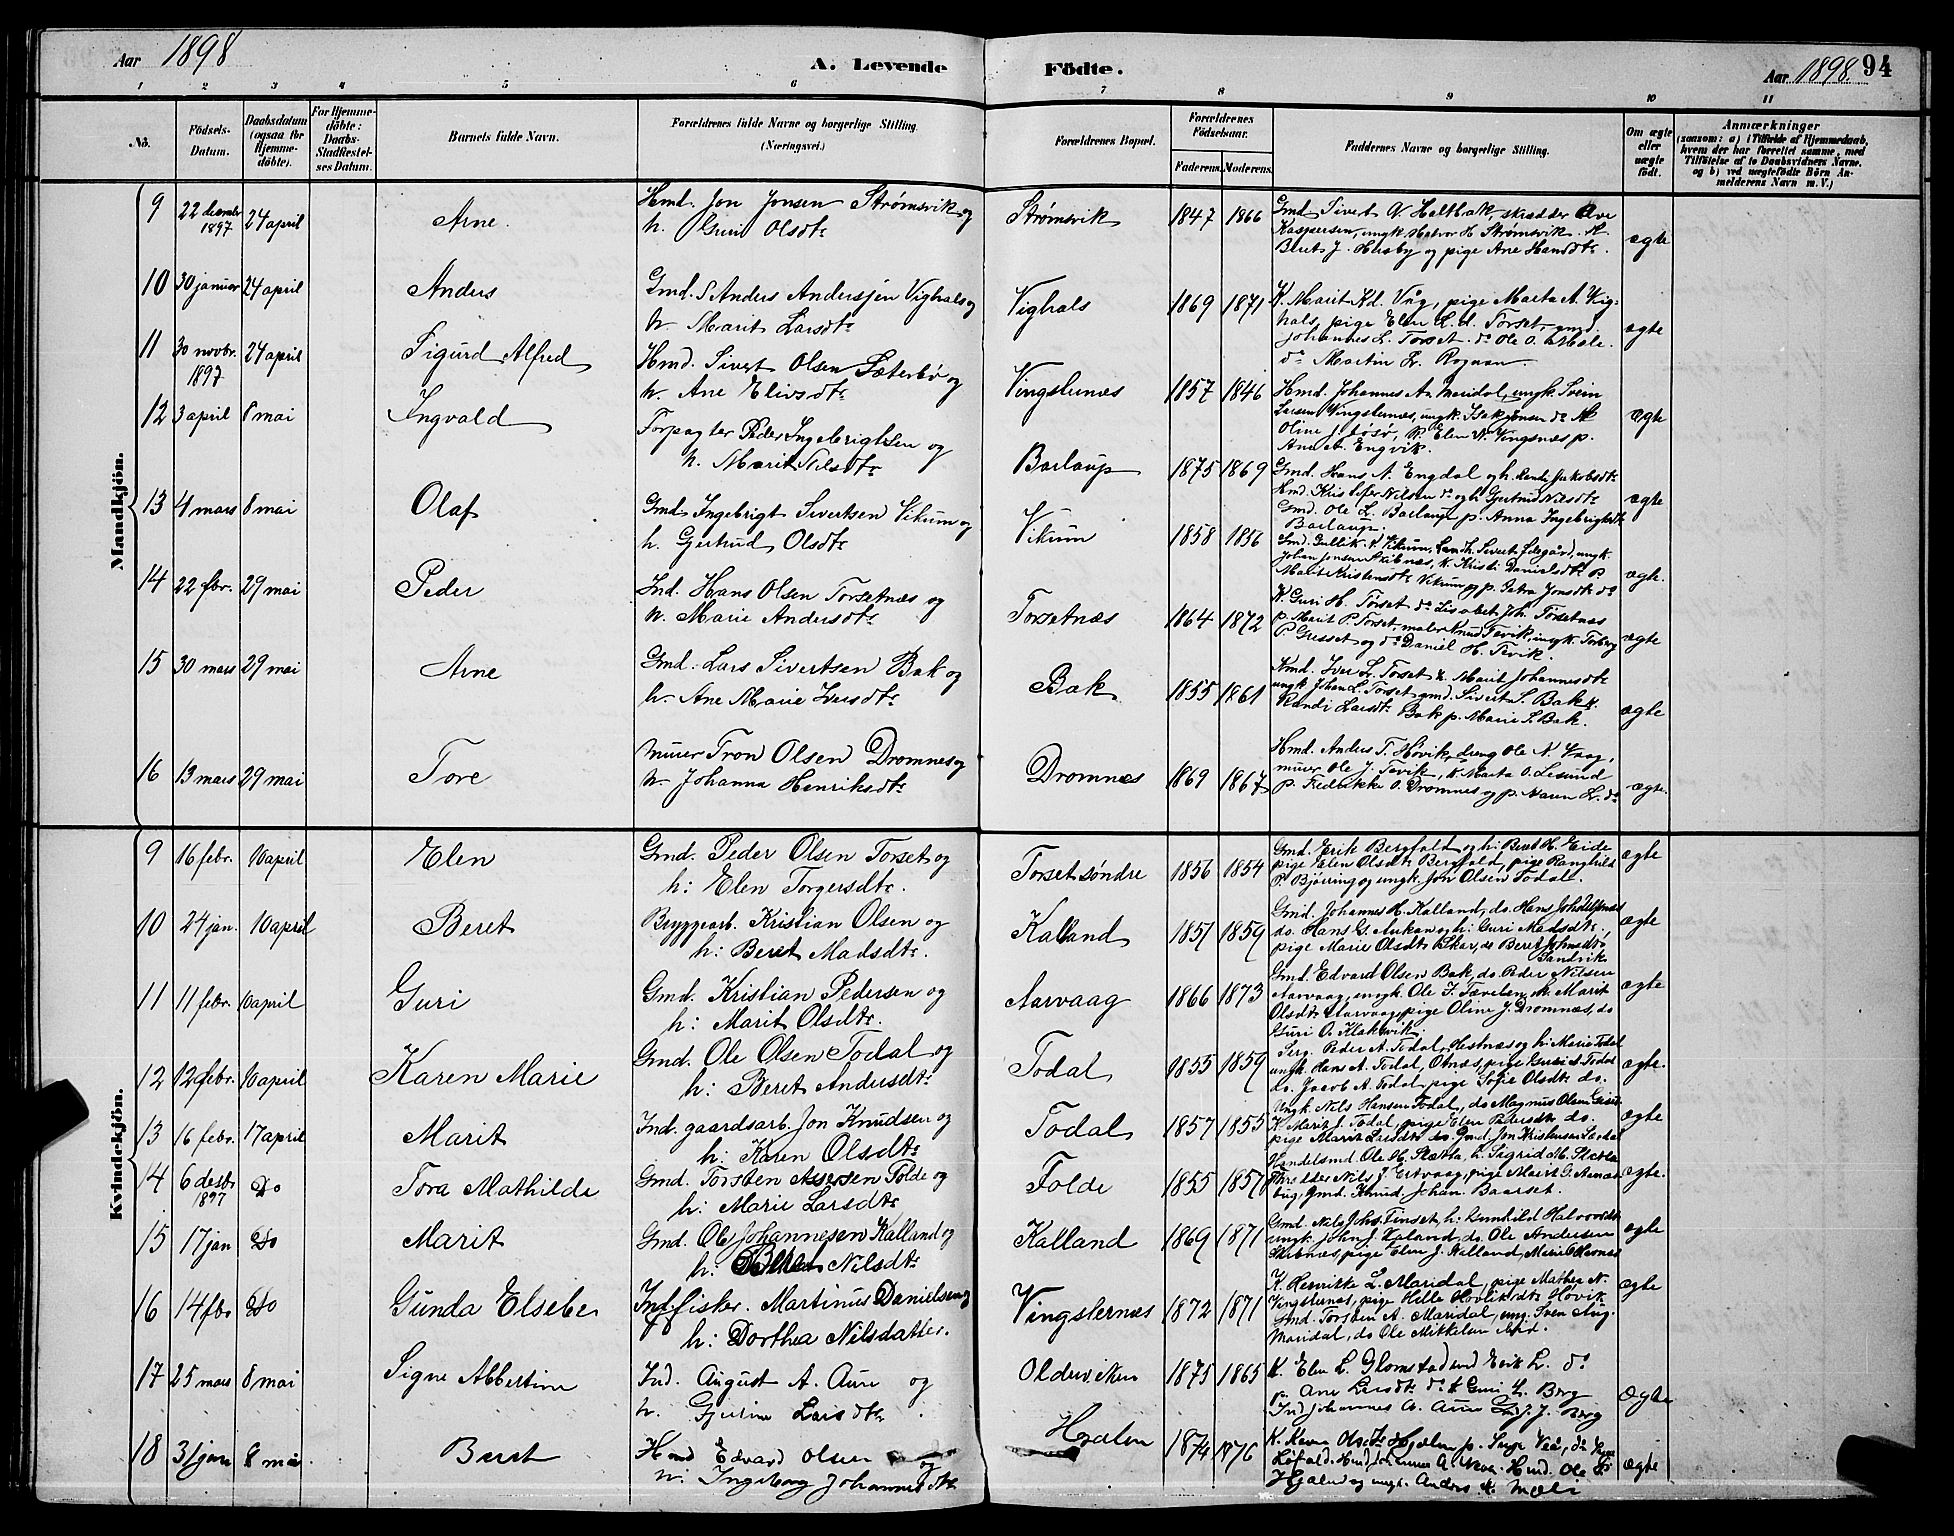 Aar 1898
A. Levende Födte.
Aar 1898. 94
1 2 3 4 5 6 7 8 9 10 11
No.
Födsels-Datum.
Daabsdatum (ogsaa for Hjemmedöbte).
For Hjemmedöbte: Daabs-Stadfæstelses Datum.
Barnets fulde Navn.
Forældrenes fulde Navne og borgerlige Stilling. (Næringsvei.)
Forældrenes Bopæl.
Forældrenes Födselsaar.
Faderens. Moderens.
Faddernes Navne og borgerlige Stilling.
Om ægte eller uægte födt.
Anmærkninger
(saasom: a) i Tilfælde af Hjemmedaab,
hvem der har forrettet samme, med
Tilföielse af to Daabsvidners Navne.
og b) ved uægtefödte Börn Anmelderens Navn m. V.)
Mandkjön.
9 22 decembr 1897 24 april Arne. Hmd. Jon Jonsen Strømsvik og
h. Guri Olsdtr Strømsvik 1847 1866 ægte
Kaspersen, ungk. Halvor H. Strømsvik. K.
Beret J. Husby og pige Ane Hansdtr.
10 30 januar 24 april Anders Gmd. S Anders Andersen Vighals og
h. Marit Larsdtr Vighals 1869 1871 ægte
K. Marit Kd. Våg, pige Marta A. Vighals, pige Elen L. d. Torset, gmd.
Johannes L. Torset. do Ole O. Mæle.
do Martin L. Rognan.
11 30 novbr. 1897 24 april Sigurd Alfred Hmd. Sivert Olsen Sæterbø og
h. Ane Elivsdtr Vingsternæs 1857 1846 ægte
Hmd. Johannes An. Maridal, ungk. Svein
Larsen Vingsternæs, ungk. Isak Jonsen do
Ane A. Engvik.
12 3 april 8 mai Ingvald Forpagter Peder Ingebrigtsen og
h. Marit Nilsdtr Barlaup 1875 1869 ægte
Gmd. Hans N. Engdal og h. Jakobsdtr
Hmd. Kristofer Nilsen do og h. Gjertrud Nilsdtr
Gmd. Ole L. Barlaup p. Anna Ingebrigtsdtr
Barlaup.
13 4 mars 8 mai Olaf Gmd. Ingebrigt Sivertsen Vikum og
h. Gjertrud Olsdtr Vikum 1858 1856 ægte.
Johan Jensen Skibnæs, K. Kristi Danielsdtr P.
Marit Kristensdtr Vikum og p. Petra Jonsdtr do
14 22 fbr. 29 mai Peder Ind. Hans Olsen Torsetnæs og
h. Marie Andersdtr Torsetnæs 1864 1872 ægte
K. Guri H. Torset do Lisabet Joh. Torsetnæs
p. Marit P. Torset, maler Knud Tevik, ungk. Torberg
P. Gusset og do Daniel H. Tevik.
15 30 mars 29 mai Arne Gmd. Lars Sivertsen Bak og
h. Ane Marie Iversdtr Bak 1855 1861 ægte
Kmd. Iver L. Torset K. Marit Johannesdtr
ungk. Johan L. Torset gmd. Sivert S. Bak K.
Randi Larsdtr Bak p. Marie S. Bak.
16 13 mars 29 mai Tore Murer Tron Olsen Dromnes og
h. Johanna Henriksdtr Dromnæs 1869 1867 ægte.
Hmd. Anders T. Hovik, dreng Ole N. Vaag,
murer Ole J. Tevik, K. Marta O. Lesund
p. Fredrikke O. Dromnes og p. Maren L. do
Kvindekjön.
9 16 febr. 10 april Elen Gmd. Peder Olsen Torset og
h: Elen Torgersdtr. Torset söndre 1856 1854 ægte
Gmd. Erik Bergfald og h: Beret H. Eide
pige Elen Olsdtr Bergfald, pige Ranghild
P. Bjørring og ungk. Jon Olsen Todal.
10 24 jan. 10 april Beret Bryggearb. Kristian Olsen og
h: Beret Madsdtr. Kalland 1857 1859 ægte
Gmd. Johannes H. Kalland, do. Hans Johs
do. Hans G. Aukan og h: Guri Madsdtr.,
pige Marie Olsdtr Pskar, do Beret Johnsdtr
Sandvik
11 11 febr. 10 april Guri Gmd. Kristian Pedersen og
h: Marit Olsdtr. Aarvaag 1866 1873 ægte
Gmd. Edvard Olsen Bak, do Peder Nilsen
Aarvaag, ungk. Ole I. Tævelen, K. Marit
Olsdtr Aarvaag, pige Oline J. Dromnæs, do
Guri O. Klaksvik.
12 12 febr. 10 april Karen Marie Gmd. Ole Olsen Todal og
h: Beret Andersdtr Todal 1855 1859 ægte.
Serg. Peder A. Todal, Hestnæs og h: Marie Todal
ungk. Hans A. Todal, Otnæs, pige Guri A. Todal
do. Jacob A. Todal, pige Sofie Olsdtr do.
13 16 febr. 17 april Marit Ind. gaardsarb. Jon Knudsen og
h: Karen Olsdtr Todal 1857 1855 ægte
Ungk. Nils Hansen Todal, do Magnus Olsen
K. Marit J. Todal, pige Elen Pedersdtr do.
pige Marit Larsdtr do. Gmd. Jon Kristensen
14 6 desbr 1897 Do Tora Mathilde Gmd. Torsten Assersen Folde og
h: Marie Larsdtr Folde 1855 1857 ægte.
Handelsmd Ole H. Sletta, h. Sigrid M. Sletta
Nils J. Ertvaag, pige Marit G.
Gmd. Knud Johan. Baarset.
15 17 jan Do Marit Gmd. Ole Johannesen Kalland og
h: Beret Nilsdtr Kalland 1869 1871 ægte
Gmd. Nils Johs. Finset, h: Gunhild Halvorsdtr
ungk. John J. Kaland, do. Ole Andersen
Skibnæs, pige Elen J. Kalland,
16 14 fbr Do Gunda Elsebe Ind fisker. Martinus Danielsen og
h: Dorthea Nilsdatter. Vingsternæs 1872 1871 ægte
K. Henrikke L. Maridal, pige Mathea N.
Vingsternæs, pige Hovik
Gmd. Torsten A. Maridal, ung. Sven Aug.
Maridal, do Ole Mikkelsen
17 25 mars 8 mai Signe Albertine Ind. August A. Aure og
h. Gjertine Larsdtr. Oldervikens 1875 1865 Ægte
K. Elen L. Glomstad und Erik L. do
p. Ane Larsdtr do K Guri L. Berg
Ind Johannes A. Aure J. Berg
18 31 jan 8 mai Beret Hmd Edvard Olsen og
h: Ingeborg Johannesdtr Hjælen 1874 1876 Ægte
Hjælen og ungk. Anders A. Mæle